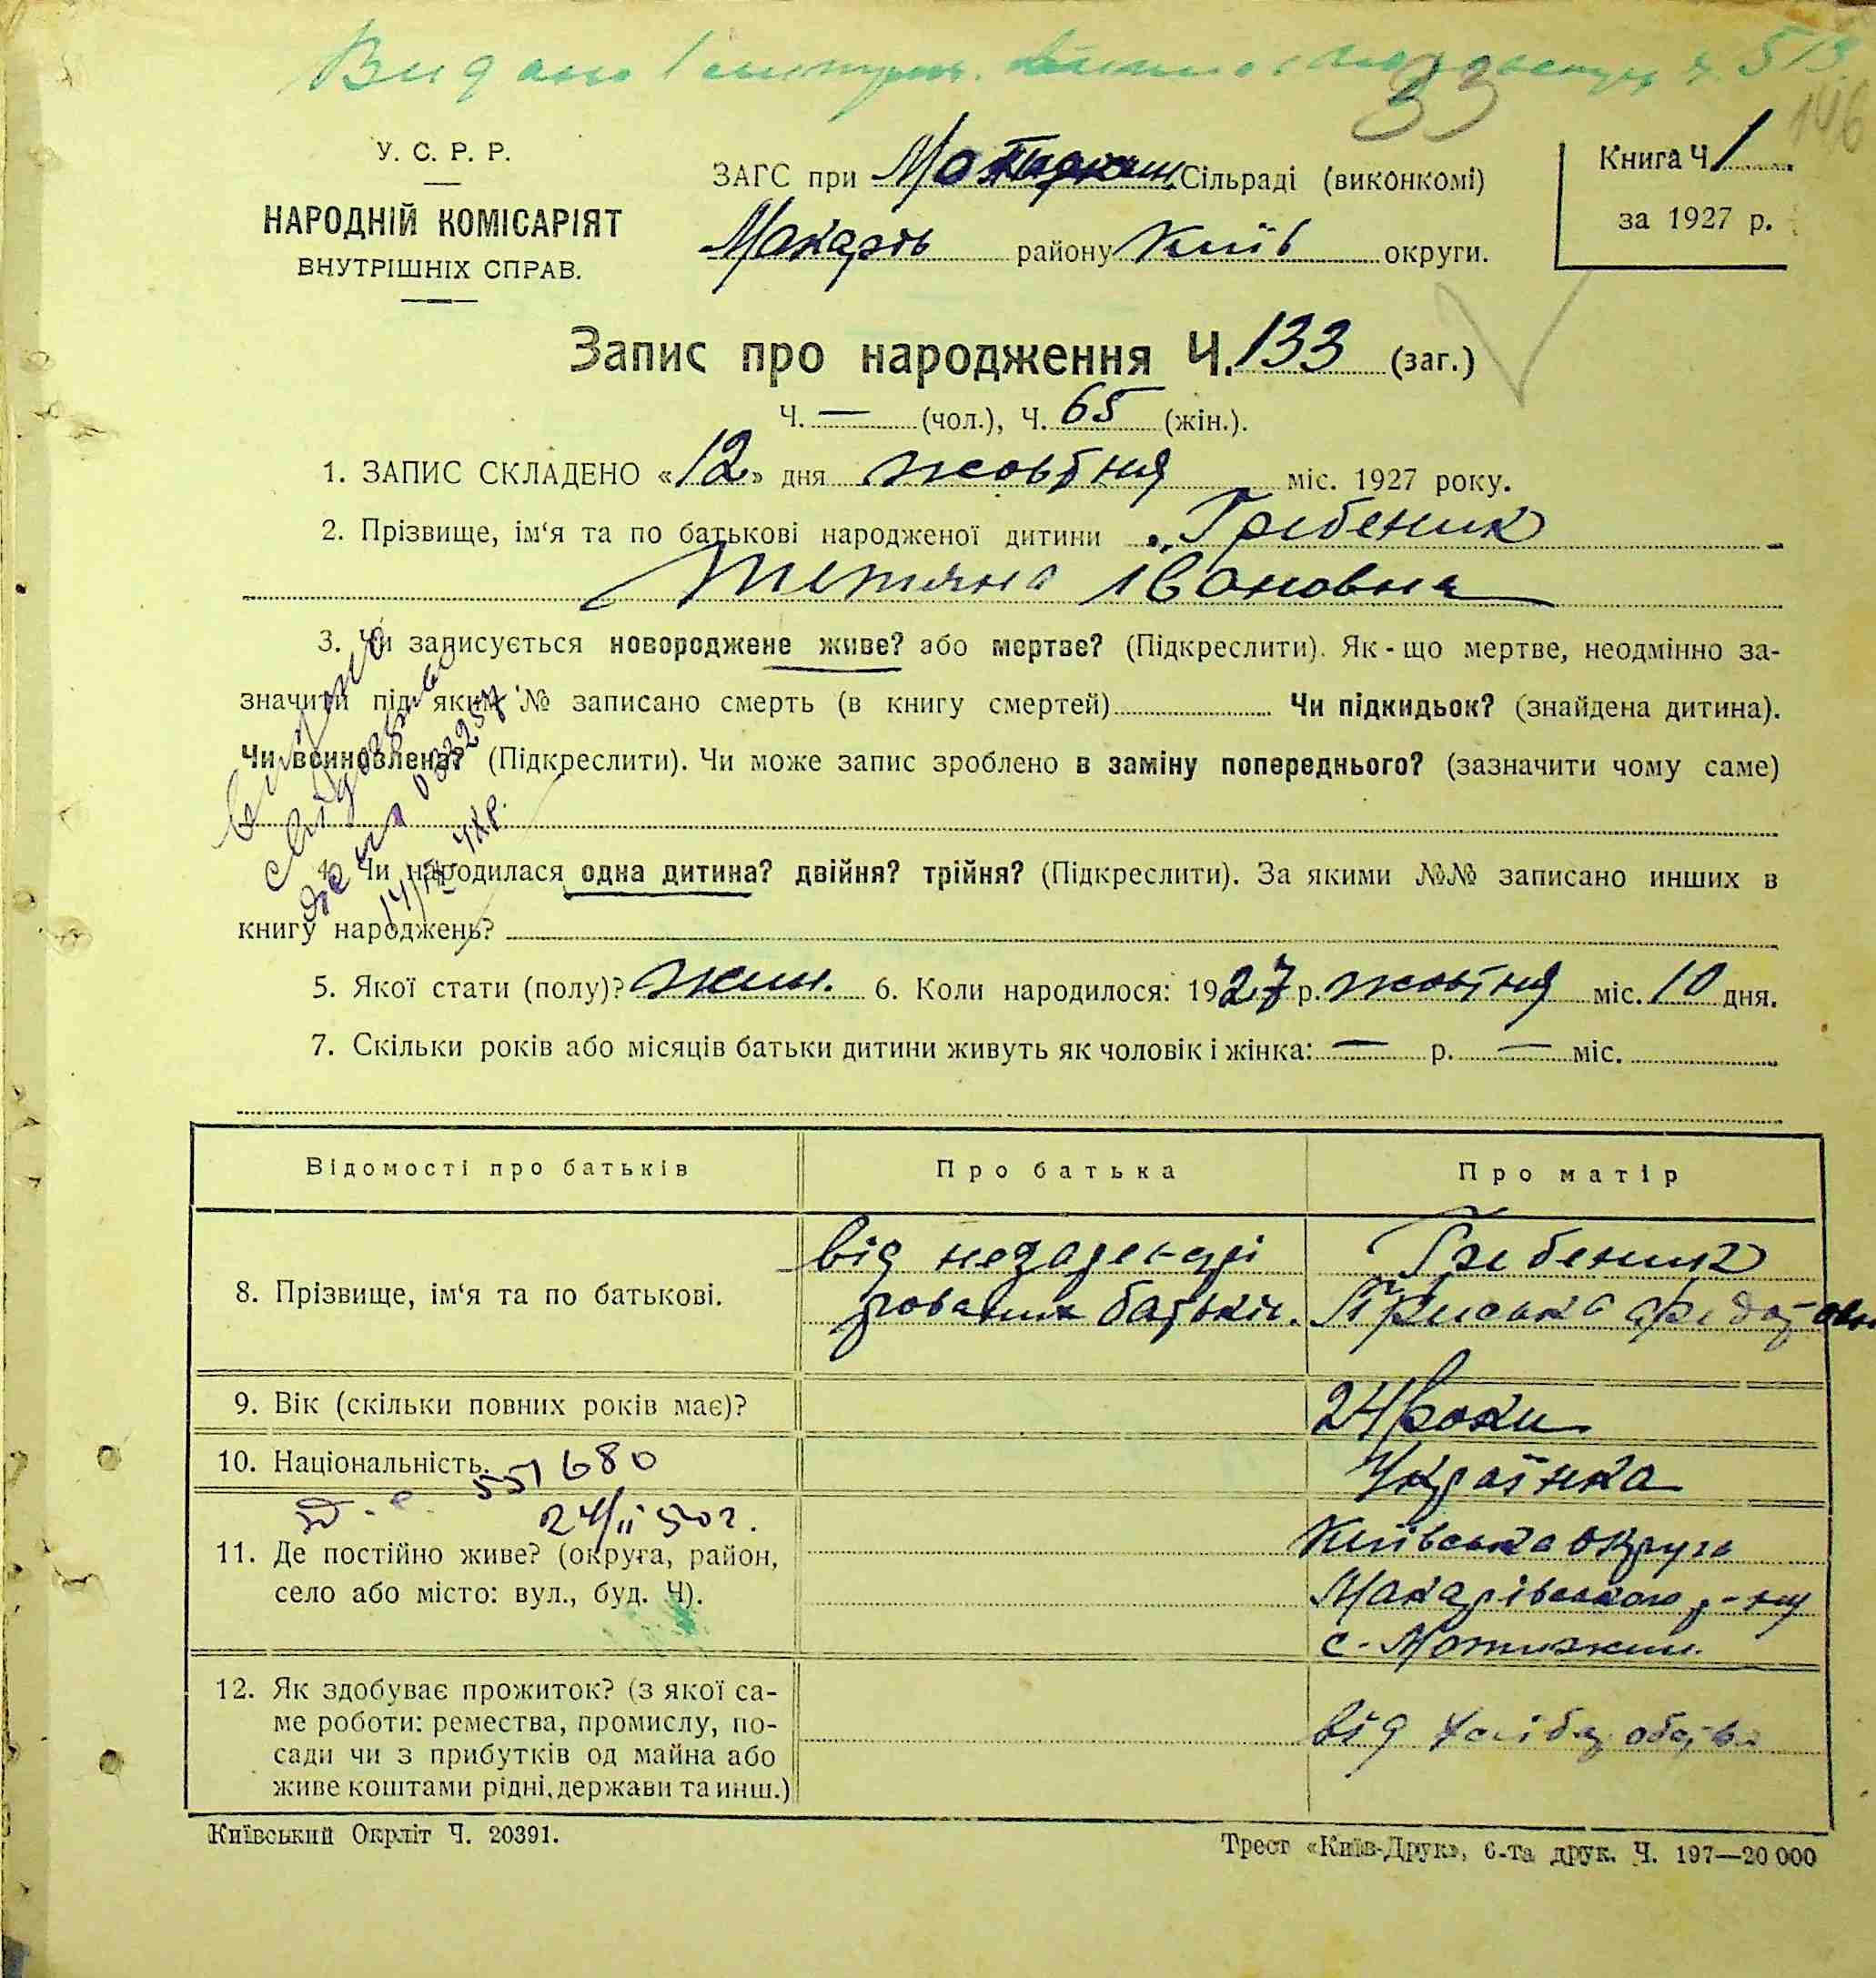 Видано
33
146
У. С. Р. Р.
НАРОДНІЙ КОМІСАРІЯТ
ВНУТРІШНІХ СПРАВ.
ЗАГС при Мотижин. Сільраді (виконкомі)
Макарів району Київ округи.
Книга Ч 1
за 1927 р.
Запис про народження Ч. 133 (заг.)
Ч. — (чол.), Ч. 65 (жін.).
1. ЗАПИС СКЛАДЕНО «12» дня жовтня міс. 1927 року.
2. Прізвище, ім‘я та по батькові народженої дитини Гребеник
Тетяна Івановна
3. Чи записується новороджене живе? або мертве? (Підкреслити). Як-що мертве, неодмінно за-
значити під яким № записано смерть (в книгу смертей) Чи підкидьок? (знайдена дитина).
Чи всиновлена? (Підкреслити). Чи може запис зроблено в заміну попереднього? (зазначити чому саме)
4. Чи народилася одна дитина? двійня? трійня? (Підкреслити). За якими №№ записано инших в
книгу народжень?
5. Якої стати (полу)? жин. 6. Коли народилося: 1927 р. жовтня міс. 10 дня.
7. Скільки років або місяців батьки дитини живуть як чоловік і жінка: — р. — міс.
Відомості про батьків
Про батька
Про матір
8. Прізвище, ім‘я та по батькові.
від незареєст
рованих батьків.
Гребеник
9. Вік (скільки повних років має)?
24 роки
10. Національність.
Українка
551680
24/II 50 г.
11. Де постійно живе? (округа, район,
село або місто: вул., буд. Ч).
Київська округа
Макарівського р-ну
с. Мотижин.
12. Як здобуває прожиток? (з якої са-
ме роботи: ремества, промислу, по-
сади чи з прибутків од майна або
живе коштами рідні, держави та инш.)
від
Київський Окрліт Ч. 20391.
Трест «Київ-Друк», 6-та друк. Ч. 197—20 000